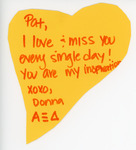 Pat,
I love & miss you
every single day!
You are my inspiration
xoxo,
Donna
ΑΞΔ